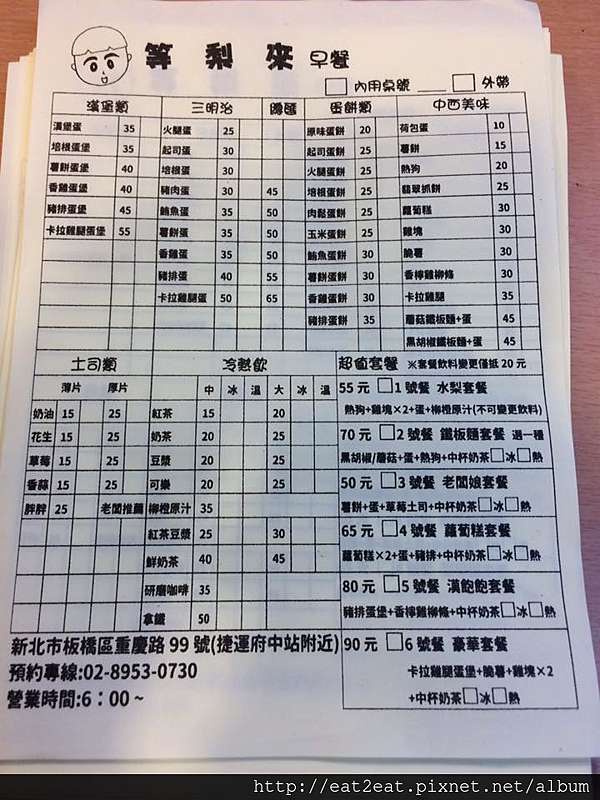 等 梨 來 早餐
□ 內用桌號 ____ □ 外帶
漢堡類 三明治 總匯 蛋餅類 中西美味
漢堡蛋 35 火腿蛋 25 原味蛋餅 20 荷包蛋 10
培根蛋堡 35 起司蛋 30 起司蛋餅 25 薯餅 15
薯餅蛋堡 40 培根蛋 30 火腿蛋餅 25 熱狗 20
香雞蛋堡 40 豬肉蛋 30 45 培根蛋餅 25 翡翠抓餅 25
豬排蛋堡 45 鮪魚蛋 35 50 肉鬆蛋餅 25 蘿蔔糕 30
卡拉雞腿蛋堡 55 薯餅蛋 35 50 玉米蛋餅 25 雞塊 30
香雞蛋 35 50 鮪魚蛋餅 30 脆薯 30
豬排蛋 40 55 薯餅蛋餅 30 香檸雞柳條 30
卡拉雞腿蛋 50 65 香雞蛋餅 30 卡拉雞腿 35
豬排蛋餅 35 蘑菇鐵板麵+蛋 45
黑胡椒鐵板麵+蛋 45
土司類 冷熱飲 超值套餐 ※套餐飲料變更僅抵 20 元
薄片 厚片 中 冰 溫 大 冰 溫
奶油 15 25 紅茶 15 20
花生 15 25 奶茶 20 25
草莓 15 25 豆漿 20 25
香蒜 15 25 可樂 20 25
胖胖 25 老闆推薦 柳橙原汁 35
紅茶豆漿 25 30
鮮奶茶 40 45
研磨咖啡 35
拿鐵 50
55 元 □1 號餐 水梨套餐
熱狗+雞塊×2+蛋+柳橙原汁(不可變更飲料)
70 元 □2 號餐 鐵板麵套餐 選一種
黑胡椒/蘑菇+蛋+熱狗+中杯奶茶□冰□熱
50 元 □3 號餐 老闆娘套餐
薯餅+蛋+草莓土司+中杯奶茶□冰□熱
65 元 □4 號餐 蘿蔔糕套餐
蘿蔔糕×2+蛋+豬排+中杯奶茶□冰□熱
80 元 □5 號餐 漢飽飽套餐
豬排蛋堡+香檸雞柳條+中杯奶茶□冰□熱
90 元 □6 號餐 豪華套餐
卡拉雞腿蛋堡+脆薯+雞塊×2
+中杯奶茶□冰□熱
新北市板橋區重慶路 99 號(捷運府中站附近)
預約專線:02-8953-0730
營業時間:6：00 ~
http://eat2eat.pixnet.net/album